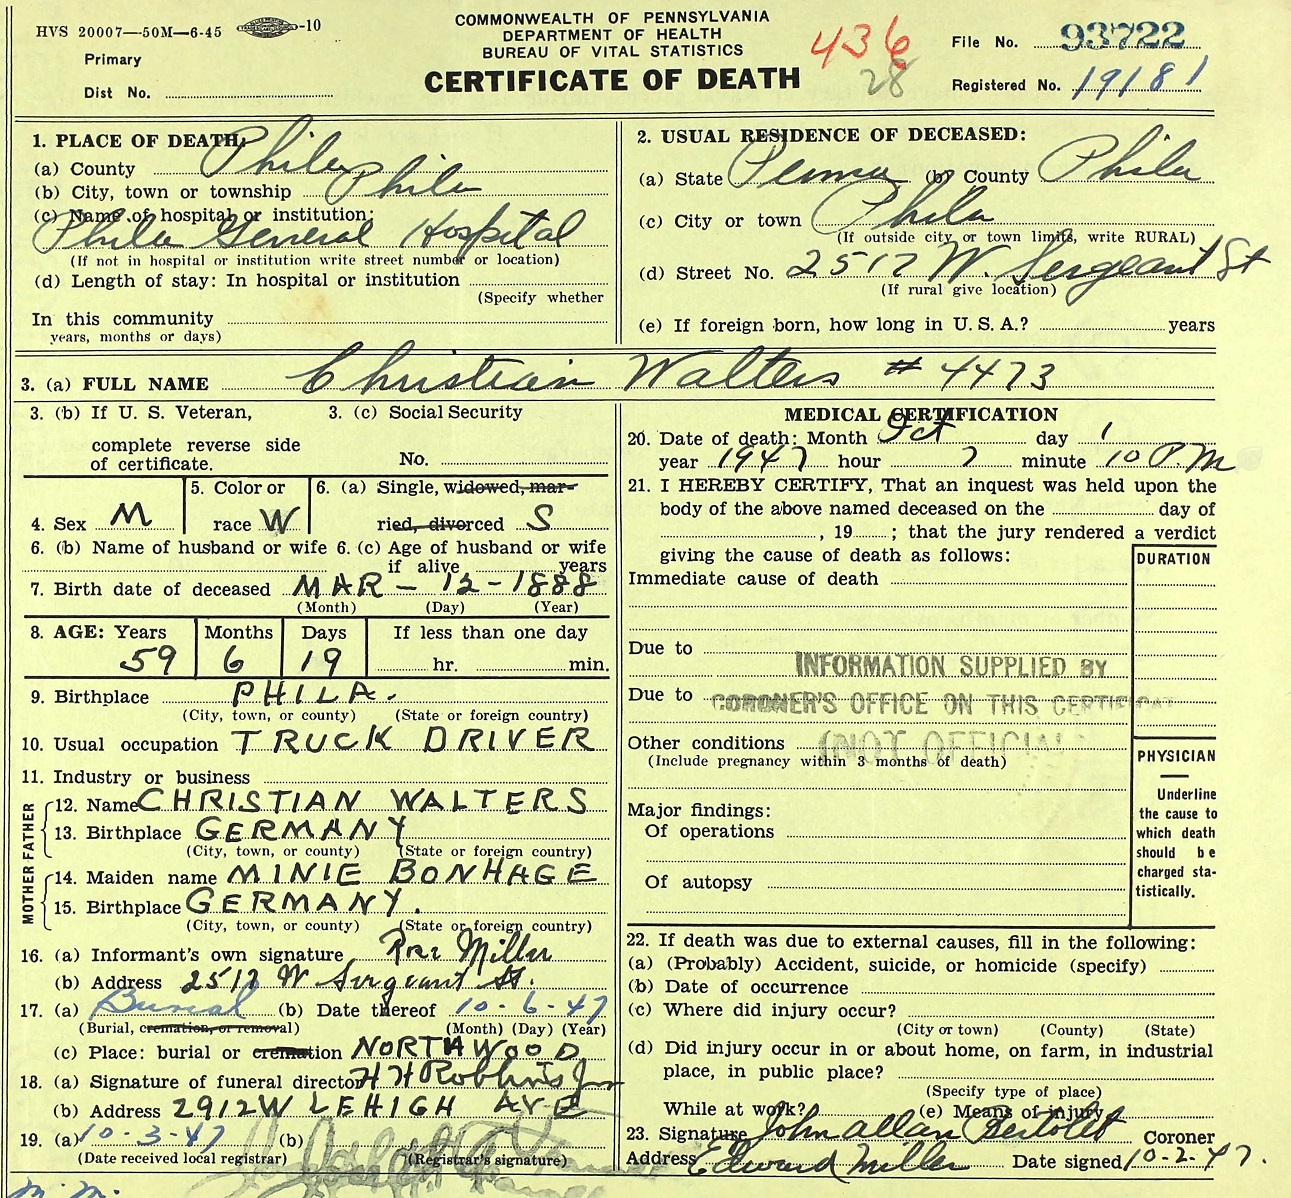 HVS 20007—50M—6-45 -10
COMMONWEALTH OF PENNSYLVANIA
DEPARTMENT OF HEALTH
BUREAU OF VITAL STATISTICS
CERTIFICATE OF DEATH
436
28
File No. 93722
Registered No. 19181
Primary
Dist No.
1. PLACE OF DEATH:
(a) County Phila
(b) City, town or township Phila
(c) Name of hospital or institution:
Phila General Hospital
(If not in hospital or institution write street number or location)
(d) Length of stay: In hospital or institution
(Specify whether
In this community
years, months or days)
2. USUAL RESIDENCE OF DECEASED:
(a) State Penna (b) County Phila
(c) City or town Phila
(If outside city or town limits, write RURAL)
(d) Street No. 2517 W. Sergeant St
(If rural give location)
(e) If foreign born, how long in U. S. A.? years
3. (a) FULL NAME Christian Walters # 4473
3. (b) If U. S. Veteran,
complete reverse side
of certificate.
3. (c) Social Security
No.
4. Sex M
5. Color or
race W
6. (a) Single, widowed, mar-
ried, divorced S
6. (b) Name of husband or wife 6. (c) Age of husband or wife
if alive years
7. Birth date of deceased MAR - 12 - 1888
(Month) (Day) (Year)
8. AGE: Years Months Days If less than one day
59 6 19 hr. min.
9. Birthplace PHILA.
(City, town, or county) (State or foreign country)
10. Usual occupation TRUCK DRIVER
11. Industry or business
FATHER
12. Name CHRISTIAN WALTERS
13. Birthplace GERMANY
(City, town, or county) (State or foreign country)
MOTHER
14. Maiden name MINIE BONHAGE
15. Birthplace GERMANY.
(City, town, or county) (State or foreign country)
16. (a) Informant's own signature Miller
(b) Address 2517 W Sergeant St.
17. (a) Burial (b) Date thereof 10-6-47
(Burial, cremation, or removal) (Month) (Day) (Year)
(c) Place: burial or cremation NORTHWOOD
18. (a) Signature of funeral director H H Robbins Jr
(b) Address 2912 W LEHIGH AVE
19. (a) 10-3-47 (b)
(Date received local registrar) (Registrar's signature)
M. M.
MEDICAL CERTIFICATION
20. Date of death: Month Oct day 1
year 1947 hour 7 minute 10 P.M
21. I HEREBY CERTIFY, That an inquest was held upon the
body of the above named deceased on the day of
, 19 ; that the jury rendered a verdict
giving the cause of death as follows:
DURATION
Immediate cause of death
Due to
INFORMATION SUPPLIED BY
Due to
CORONER'S OFFICE ON THIS CERTIFICAT
Other conditions
(NOT OFFICIAL
(Include pregnancy within 3 months of death)
Major findings:
Of operations
Of autopsy
PHYSICIAN
Underline
the cause to
which death
should be
charged sta-
tistically.
22. If death was due to external causes, fill in the following:
(a) (Probably) Accident, suicide, or homicide (specify)
(b) Date of occurrence
(c) Where did injury occur?
(City or town) (County) (State)
(d) Did injury occur in or about home, on farm, in industrial
place, in public place?
(Specify type of place)
While at work? (e) Means of injury
23. Signature John Allan Bertolet Coroner
Address Edward Miller Date signed 10-2-47.